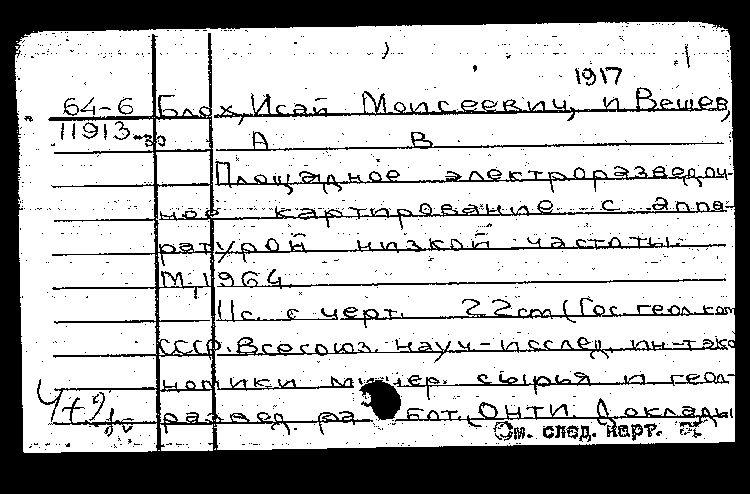 1917
64-6 Блох, Исай Моисеевич, и Вешев,
11913-30 А В
Площадное электроразведоч-
ное картирование с аппа-
ратурой низкой частоты.
М, 1964
11с. с черт. 22cm (Гос. геол. ком
СССР. Всесоюз. науч-исслед. ин-т эко
номики минер. сырья и геол-
развед. работ. ОНТИ. Доклады
См. след. карт.